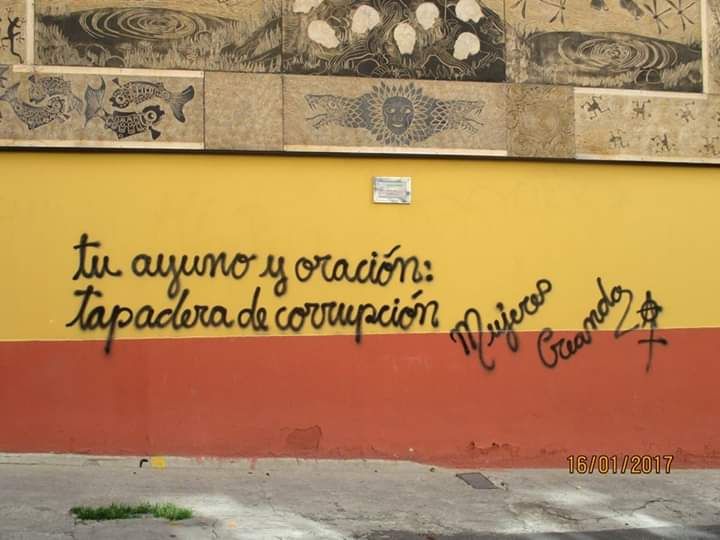 tu ayuno y oración:
tapadera de corrupción
Mujeres
Creando
16/01/2017